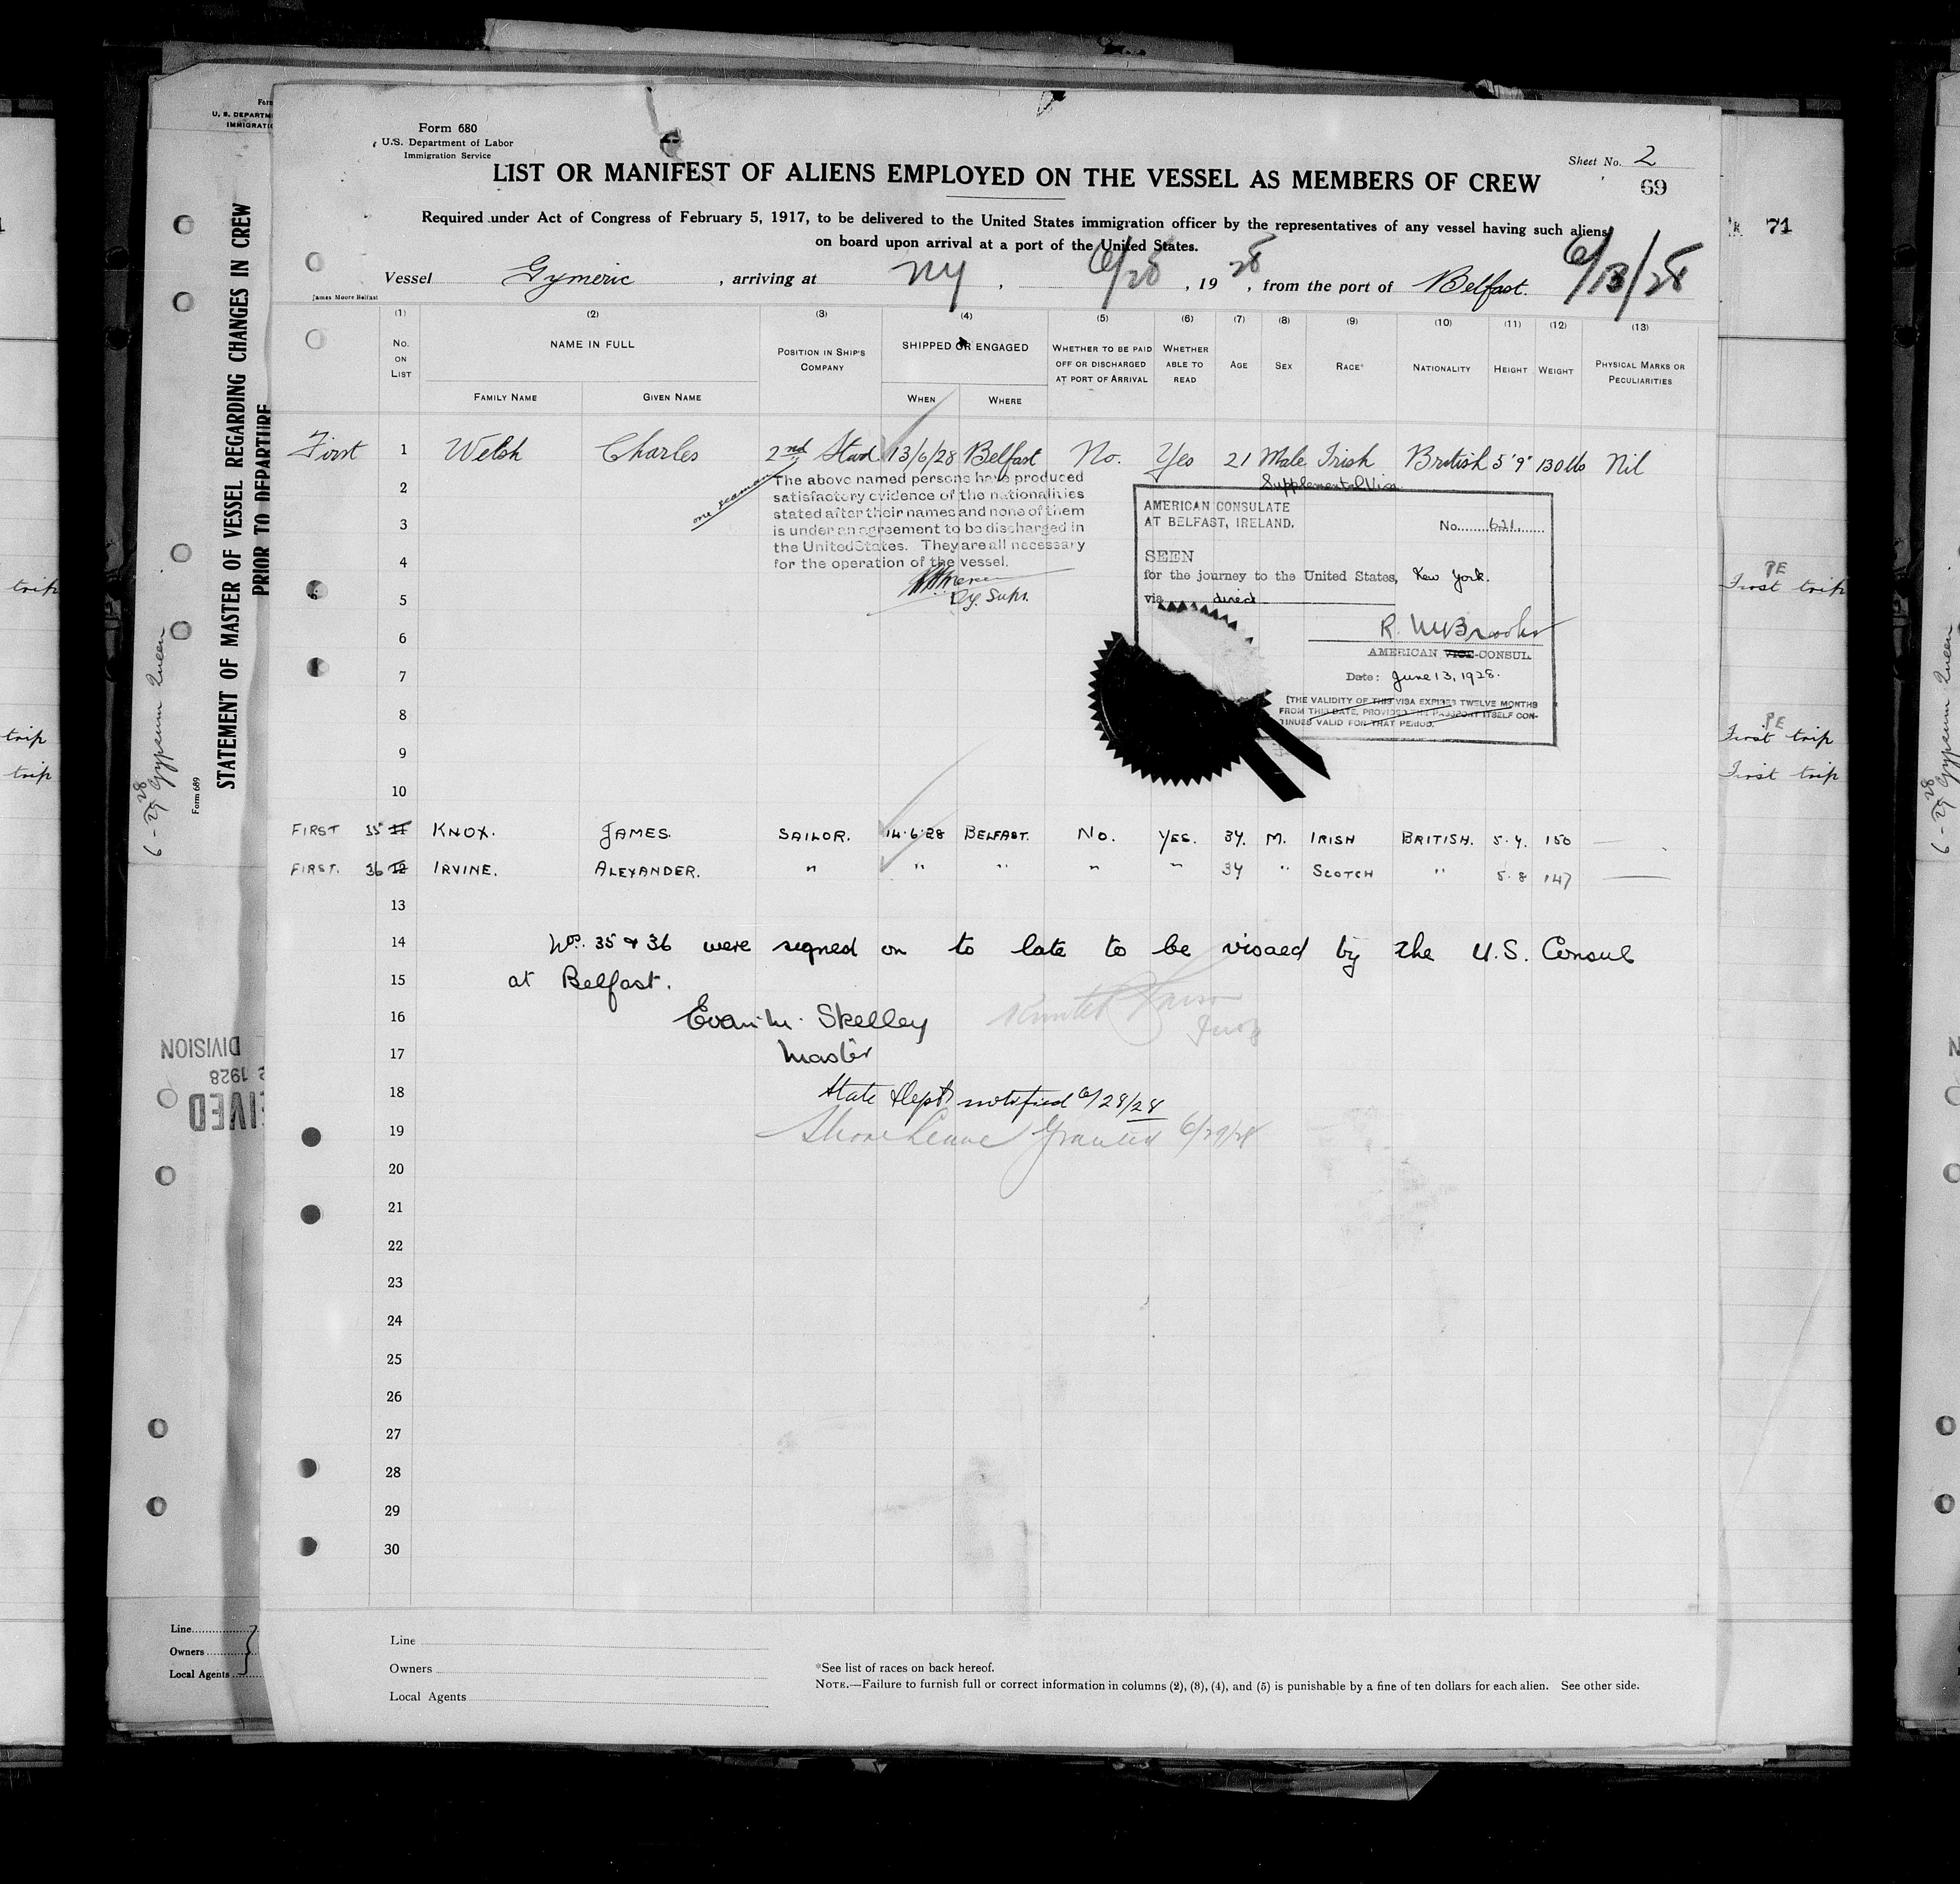 Form 680
U.S. Department of Labor
Immigration Service
Sheet No. 2
69
LIST OR MANIFEST OF ALIENS EMPLOYED ON THE VESSEL AS MEMBERS OF CREW
Required under Act of Congress of February 5, 1917, to be delivered to the United States immigration officer by the representatives of any vessel having such aliens
on board upon arrival at a port of the United States.
Vessel Gymeric , arriving at NY , 6/28 , 19 28 , from the port of Belfast. 6/13/28
James Moore Belfast
(1) (2) (3) (4) (5) (6) (7) (8) (9) (10) (11) (12) (13)
No. ON LIST
NAME IN FULL
FAMILY NAME GIVEN NAME
POSITION IN SHIP'S COMPANY
SHIPPED OR ENGAGED
WHEN WHERE
WHETHER TO BE PAID OFF OR DISCHARGED AT PORT OF ARRIVAL
WHETHER ABLE TO READ
AGE SEX RACE* NATIONALITY HEIGHT WEIGHT
PHYSICAL MARKS OR PECULIARITIES
First 1 Welsh Charles 2nd Stwd. 13/6/28 Belfast No. Yes 21 Male Irish British 5'9" 130 lbs Nil
one seaman
The above named persons have produced
satisfactory evidence of the nationalities
stated after their names and none of them
is under an agreement to be discharged in
the United States. They are all necessary
for the operation of the vessel.
Dy. Supt.
Supplemental Visa
AMERICAN CONSULATE
AT BELFAST, IRELAND.
No. 621
SEEN
for the journey to the United States, New York.
via direct
AMERICAN VICE-CONSUL
Date: June 13, 1928.
[THE VALIDITY OF THIS VISA EXPIRES TWELVE MONTHS
FROM THIS DATE, PROVIDED THE PASSPORT ITSELF CON-
TINUES VALID FOR THAT PERIOD.
2
3
4
5
6
7
8
9
10
FIRST 35 11 KNOX. JAMES. SAILOR. 14.6.28 BELFAST. NO. YES. 34. M. IRISH BRITISH. 5.4. 150 —
FIRST. 36 12 IRVINE. ALEXANDER. " " " " " 34 " SCOTCH " 5.8 147 —
13
14 Nos. 35 & 36 were signed on to late to be visaed by the U.S. Consul
15 at Belfast.
16 Evan M. Skelley
17 Master
18 State Dept notified 6/28/28
19 Shore Leave Granted 6/29/28
20
21
22
23
24
25
26
27
28
29
30
Line
Owners
Local Agents
*See list of races on back hereof.
NOTE.—Failure to furnish full or correct information in columns (2), (3), (4), and (5) is punishable by a fine of ten dollars for each alien. See other side.
STATEMENT OF MASTER OF VESSEL REGARDING CHANGES IN CREW
PRIOR TO DEPARTURE
Form 689
6-29-28 Gypsum Queen
DIVISION
1928
Line
Owners
Local Agents
71
PE
First trip
PE
First trip
First trip
trip
trip
trip